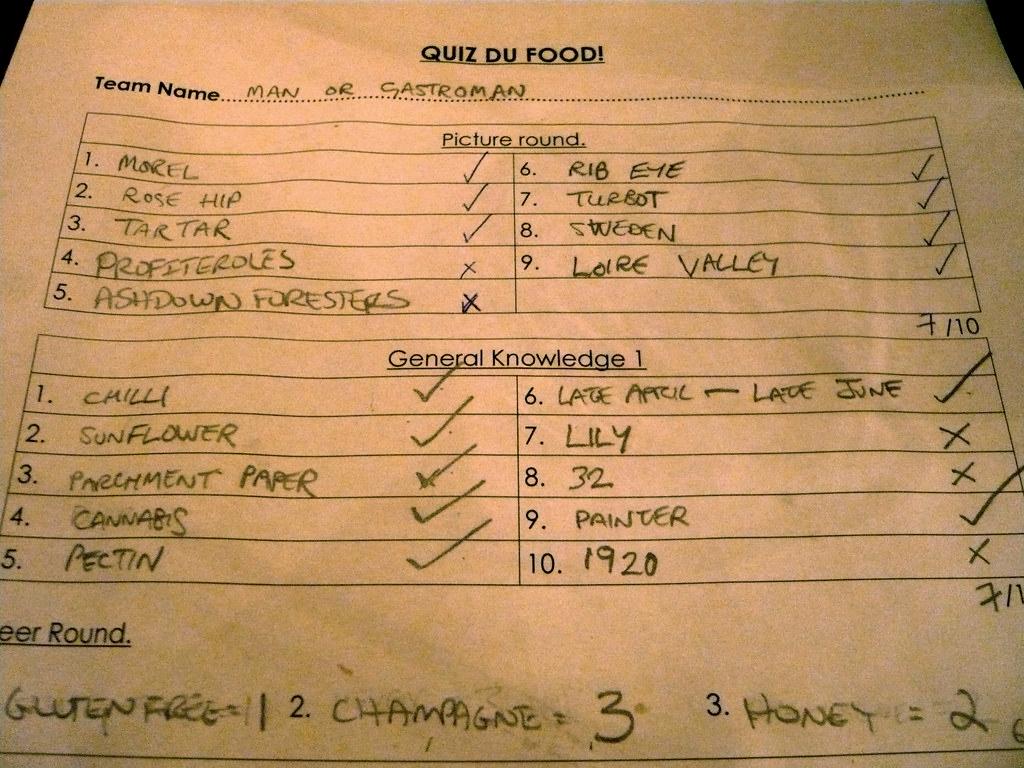 QUIZ DU FOOD!
Team Name MAN OR GASTROMAN
Picture round.
1. MOREL 6. RIB EYE
2. ROSE HIP 7. TURBOT
3. TARTAR 8. SWEDEN
4. PROFITEROLES 9. LOIRE VALLEY
5. ASHDOWN FORESTERS
7/10
General Knowledge 1
1. CHILLI 6. LATE APRIL – LATE JUNE
2. SUNFLOWER 7. LILY
3. PARCHMENT PAPER 8. 32
4. CANNABIS 9. PAINTER
5. PECTIN 10. 1920
7/1
eer Round.
GLUTEN FREE = 1 2. CHAMPAGNE = 3 3. HONEY = 2